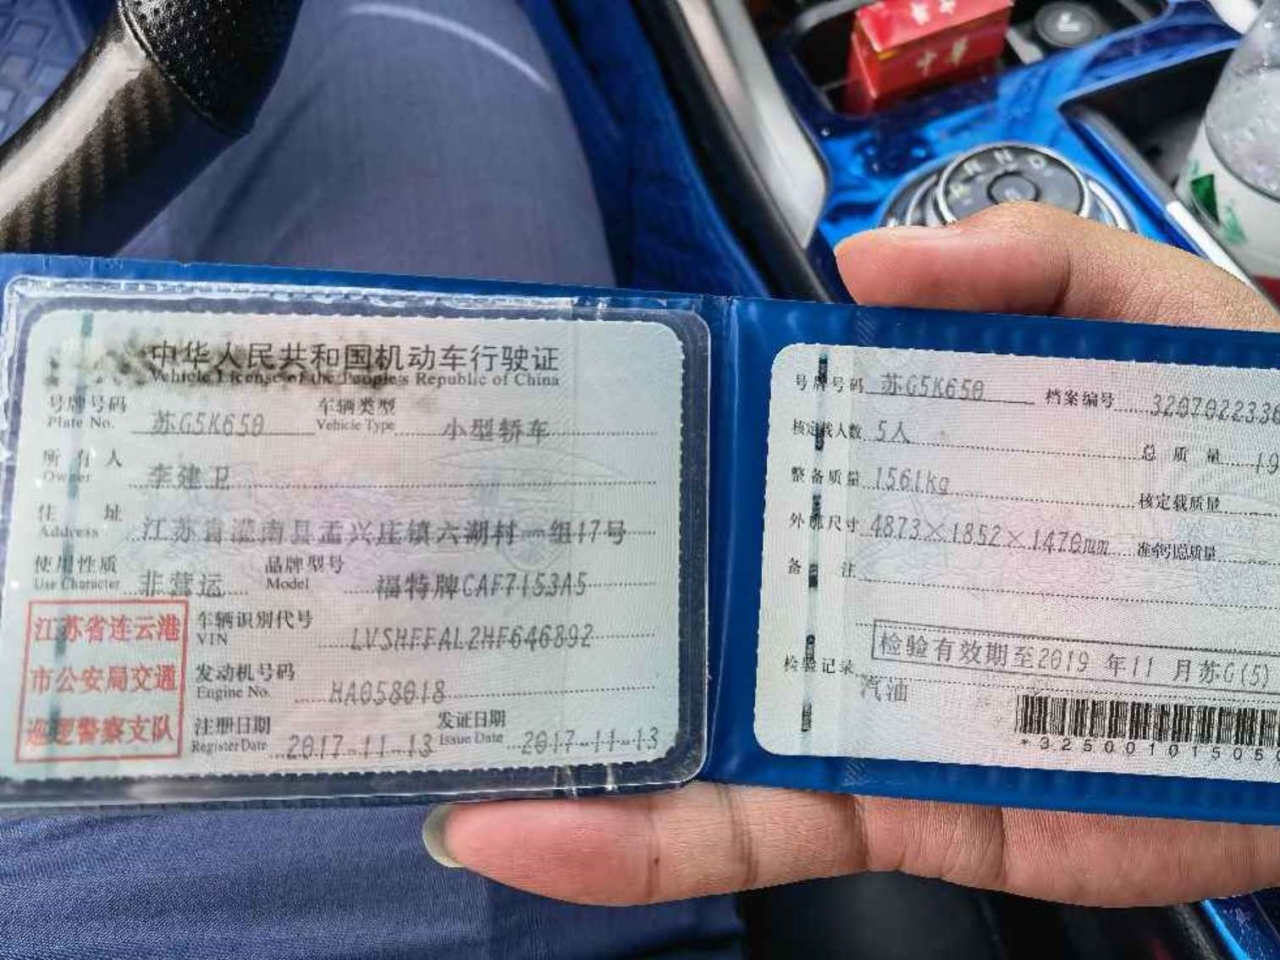 中华人民共和国机动车行驶证
Vehicle License of the People's Republic of China
号牌号码 苏G5K650 车辆类型 小型轿车
Plate No. Vehicle Type
所有人 李建卫
Owner
住址 江苏省灌南县孟兴庄镇六湖村一组17号
Address
使用性质 非营运 品牌型号 福特牌CAF7153A5
Use Character Model
江苏省连云港
市公安局交通
巡逻警察支队
车辆识别代号 LVSHFFAL2HF646892
VIN
发动机号码 HA058018
Engine No.
注册日期 2017-11-13 发证日期 2017-11-13
Register Date Issue Date
号牌号码 苏G5K650 档案编号 3207022338
核定载人数 5人 总质量 19
整备质量 1561kg 核定载质量
外廓尺寸 4873×1852×1470mm 准牵引总质量
备注
检验有效期至2019年11月苏G(5)
检验记录
汽油
*32500101505